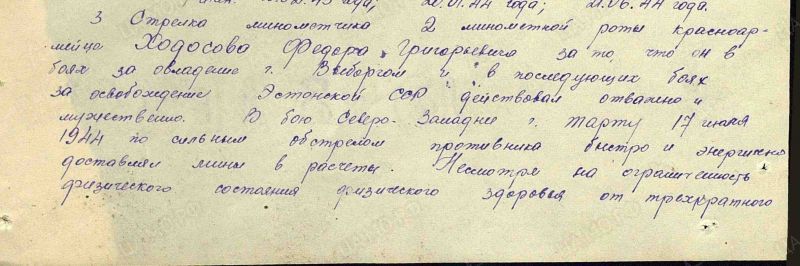 2.43 года; 20.01.44 года; 21.06.44 года.
3 Стрелка минометчика 2 минометной роты красноар-
мейца Ходосова Федора Григорьевича за то, что он в
боях за овладение г. Выборгом и в последующих боях
за освобождение Эстонской ССР действовал отважно и
мужественно. В бою Северо-Западнее г. Тарту 17
1944 по сильным обстрелом противника быстро и энергично
доставлял мины в расчеты. Несмотря на ограниченность
физического состояния физического здоровья от трехкратного